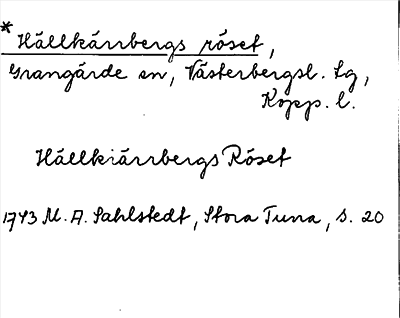 * Hällkärrbergs röset,
Grangärde sn, Västerbergsl. lg,
Kopp. l.
Hällkiärrbergs Röset
1743 M. A. Sahlstedt, Stora Tuna, s. 20